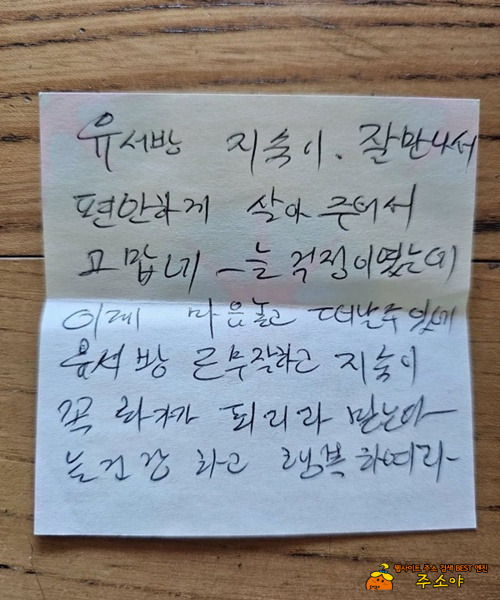 유서방 지숙이. 잘 만나서
편안하게 살아 주어서
고맙네 늘 걱정이였는데
이제 마음놓고 떠날수있네
유서방 근무잘하고 지숙이
꼭 화가가 되리라 믿는다
늘 건강 하고 행복 하여라
웹사이트 주소 검색 BEST 엔진
주소야